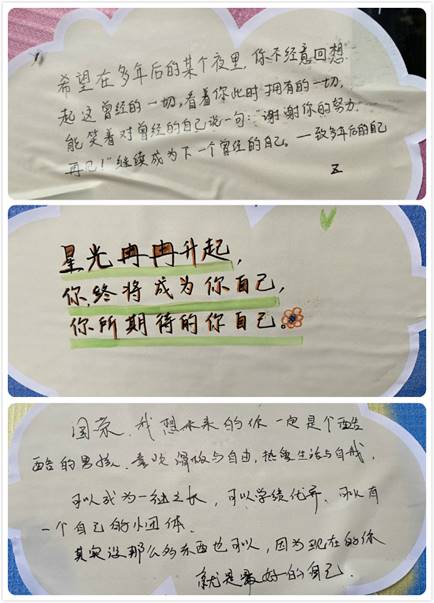 希望在多年后的某个夜里,你不经意回想
起这曾经的一切,看着你此时拥有的一切,
能笑着对曾经的自己说一句:"谢谢你的努力.
再见!"继续成为下一个曾经的自己。—致多年后的自己
星光冉冉升起,
你终将成为你自己,
你所期待的你自己。
国荣.我想未来的你一定是个酷
酷的男孩.喜欢滑板与自由,热爱生活与自我.
可以成为一组之长,可以学绩优异.可以有
一个自己的小团体.
其实没那么多东西也可以,因为现在的你
就是最好的自己.